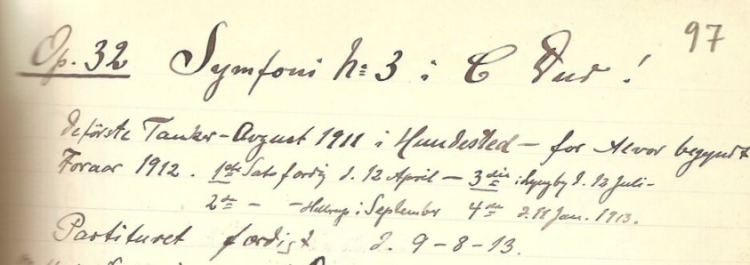 97
Op. 32 Symfoni No 3 i C Dur!
de første Tanker - August 1911 i Hundested - for Alvor begyndt
Foraar 1912. 1ste Sats færdig d. 12 April - 3die i Lyngby d. 12 Juli -
2den - - Hellerup i September 4de d. 18 Jan. 1913.
Partituret færdigt d. 9-8-13.